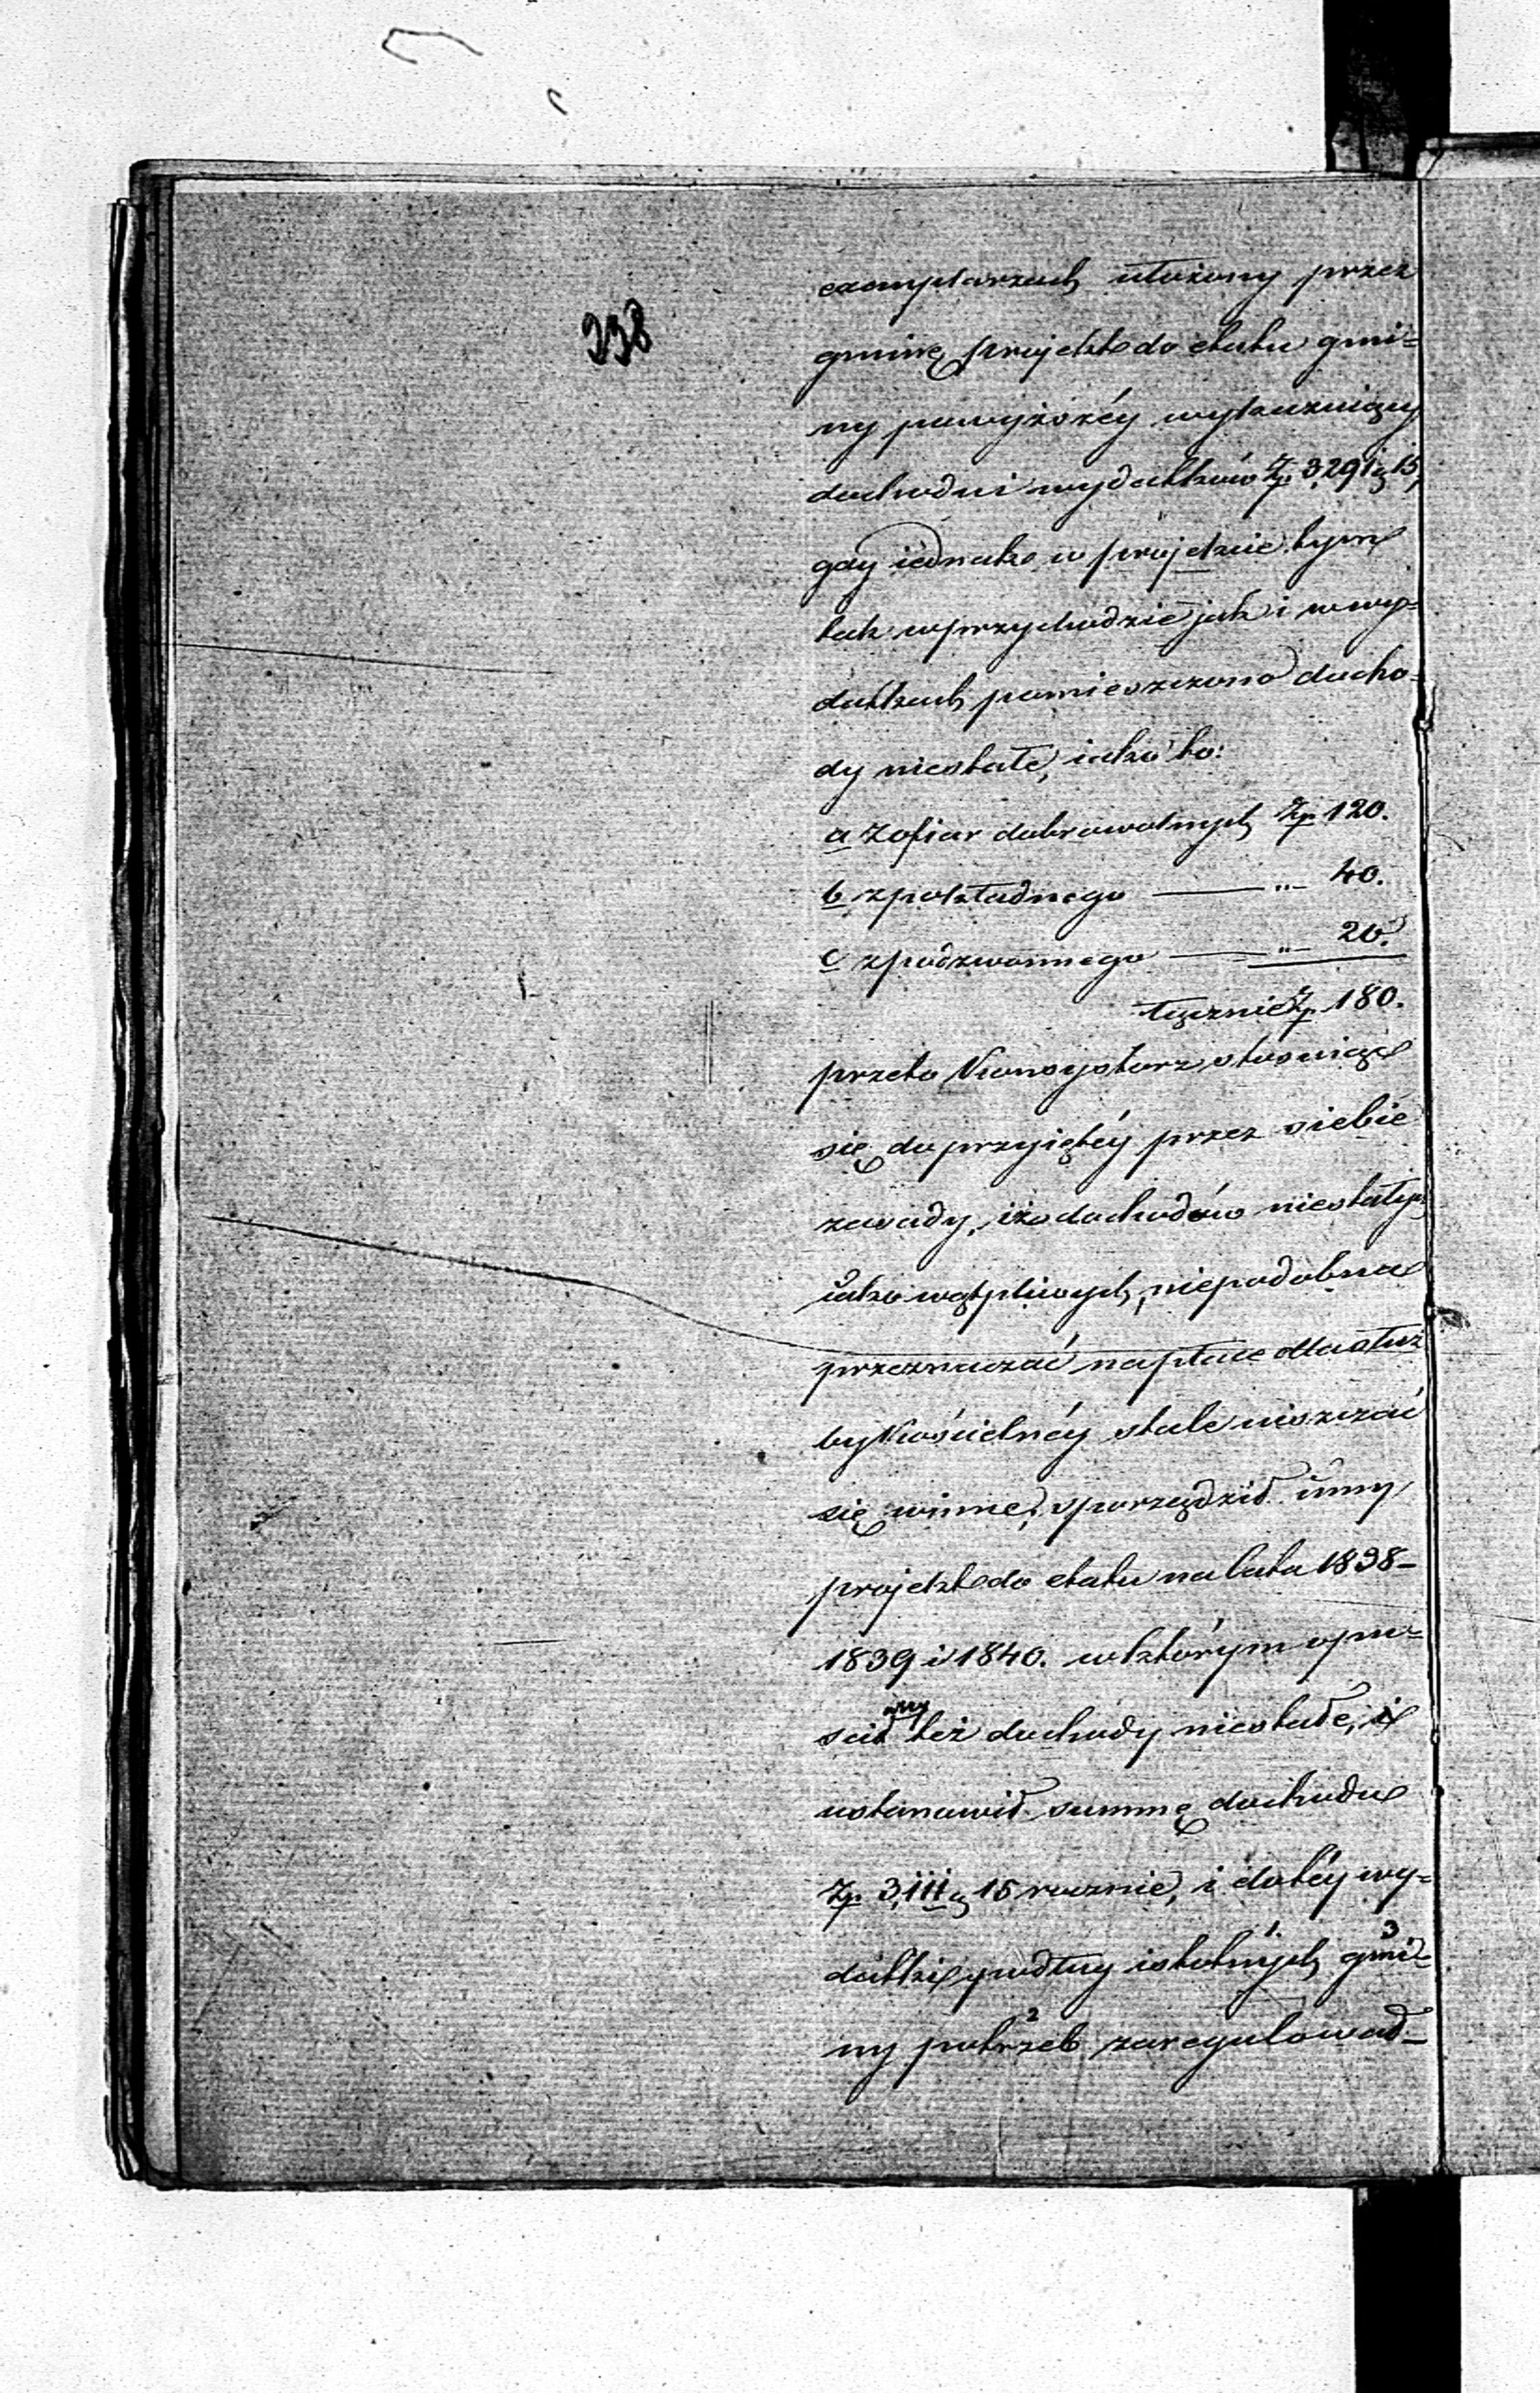 338
exemplarzach ułożony przez
gminę projekt do etatu gmi=
ny powyższéy wykazuiący
dochodu i wydatków Zp. 3,291 g 15,
gdy iednak w projekcie tym
tak w przychodzie jak i w wy=
datkach pomieszczono docho=
dy niestałe, iako to:
a z ofiar dobrowolnych Zp. 120.
b z pokładnego — „ — 40.
c z podzwonnego — „ — 20.
łącznie Zp. 180.
przeto Konsystorz stosuiąc
się do przyiętéy przez siebie
zasady, iż dochodów niestałych
iako wątpliwych, niepodobna
przeznaczać na płace dla służ
by Kościelnéy stale uiszczać
się winne, sporządził inny
projekt do etatu na lata 1838–
1839 i 1840. w którym opu=
scił też dochody niestałe, i
ustanowił summę dochodu
Zp. 3,111 g 15 rocznie, i do téy wy=
datki podług istotnych 1. gmi= 3
ny potrzeb 2 zaregulował –